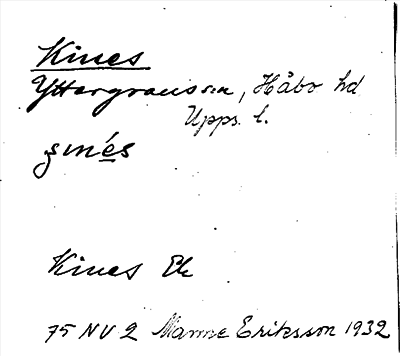 Kines
Yttergransen, Håbo hd
Upps. l.
Kines Ek
75 NV 2 Manne Eriksson 1932